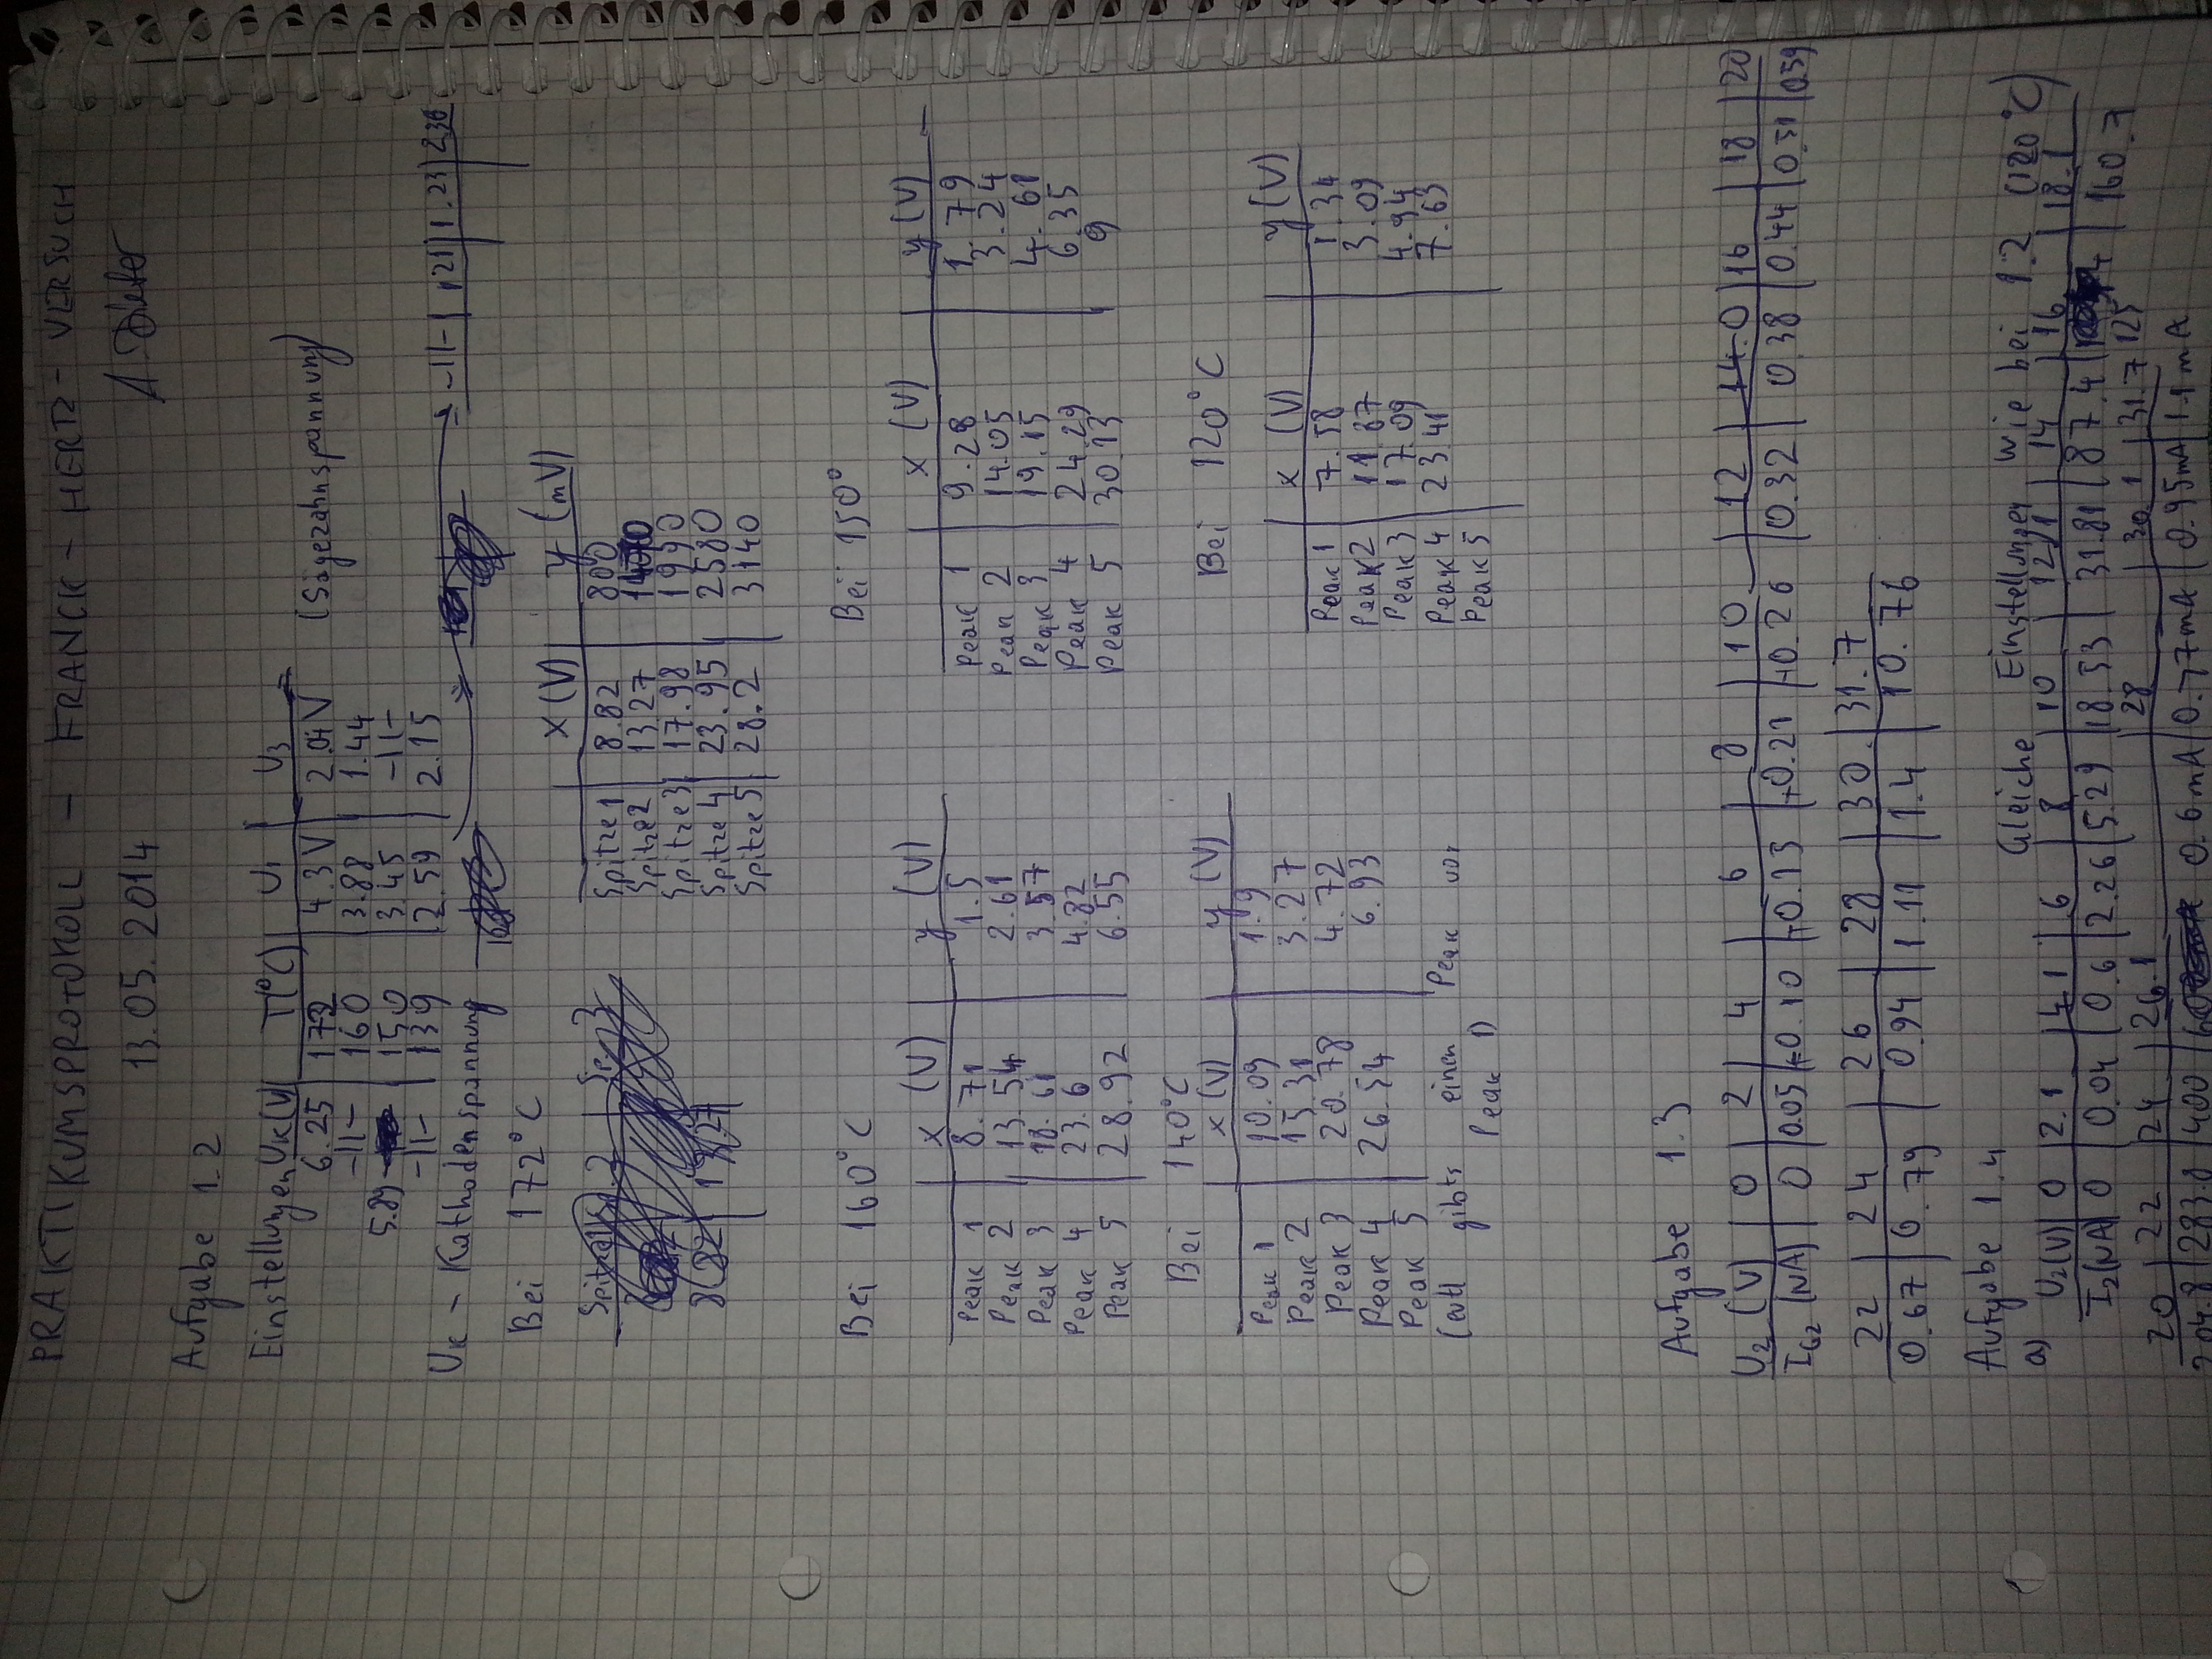 PRAKTIKUMSPROTOKOLL – FRANCK-HERTZ-VERSUCH
13.05.2014
Aufgabe 1.2
Einstellungen UK(V) T(°C) U1 U3
6.25 172 4.3V 2.04V (Sägezahnspannung)
-11- 160 3.88 1.44
5.89 150 3.45 -11-
-11- 139 2.59 2.15
UK – Kathodenspannung
-11- 121 1.23 2.36
Bei 172°C
x (V) y (mV)
Spitze1 8.82 800
Spitze2 13.27
Spitze3 17.98 1990
Spitze4 23.95 2580
Spitze5 28.2 3140
Bei 160°C
x (V) y (V)
Peak 1 8.71 1.5
Peak 2 13.54 2.61
Peak 3 18.61 3.57
Peak 4 23.6 4.82
Peak 5 28.92 6.55
Bei 150°
x (V) y (V)
Peak 1 9.28 1.79
Peak 2 14.05 3.24
Peak 3 19.15 4.61
Peak 4 24.29 6.35
Peak 5 30.13 9
Bei 140°C
x (V) y (V)
Peak 1 10.09 1.9
Peak 2 15.31 3.27
Peak 3 20.78 4.72
Peak 4 26.54 6.93
Peak 5
(evtl gibts einen Peak vor
Peak 1)
Bei 120°C
x (V) y (V)
Peak 1 7.58 1.34
Peak 2 11.87 3.09
Peak 3 17.09 4.94
Peak 4 23.41 7.63
Peak 5
Aufgabe 1.3
U2 (V) 0 2 4 6 8 10 12 14.0 16 18 20
IG2 (NA) 0 0.05 0.10 +0.15 +0.21 +0.26 0.32 0.38 0.44 0.51 0.59
22 24 26 28 30 31.7
0.67 0.79 0.94 1.11 1.4 10.76
Aufgabe 1.4
Gleiche Einstellungen wie bei 1.2 (120°C)
a)
U2(V) 0 2.1 4.1 6 8 10 12.1 14 16 18.1
I2(NA) 0 0.04 0.6 2.26 5.29 18.53 31.81 87.4 125 160.7
20 22 24 26.1 28 30.1 31.7
204.8 283.8 400 0.6mA 0.77mA 0.95mA 1.1mA